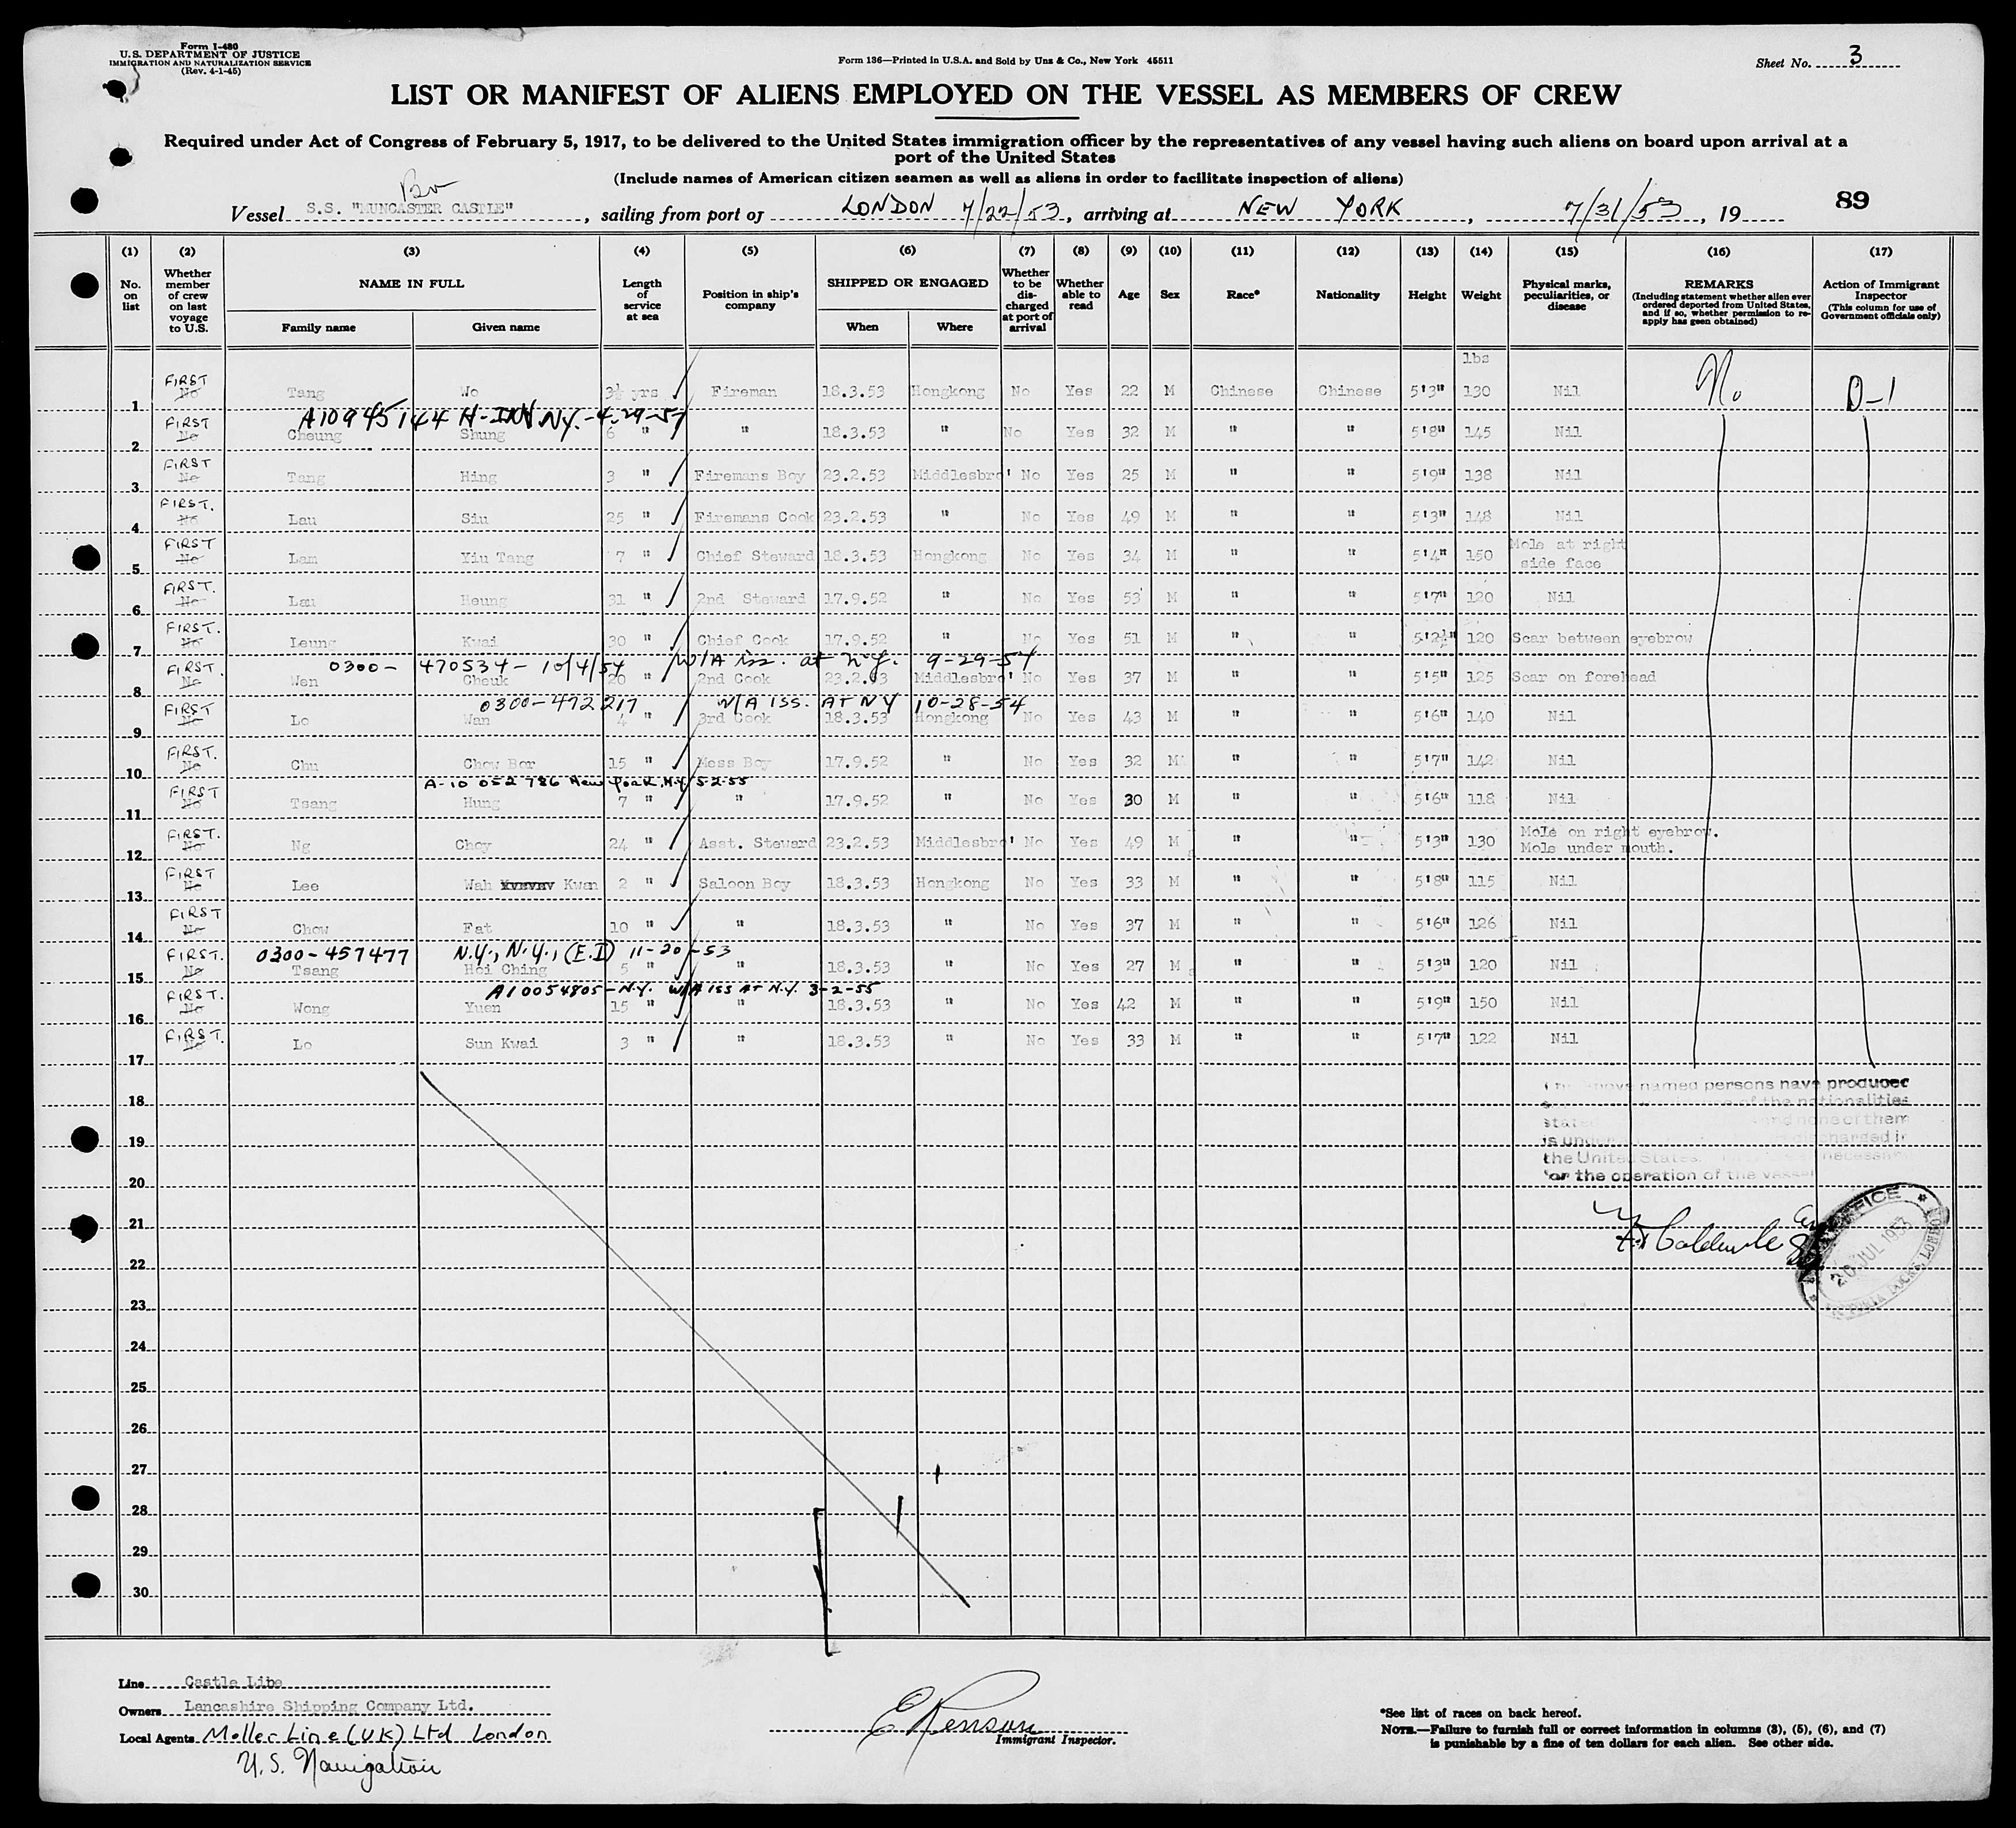 Form I-480
U. S. DEPARTMENT OF JUSTICE
IMMIGRATION AND NATURALIZATION SERVICE
(Rev. 4-1-45)
Form 136—Printed in U.S.A. and Sold by Unz & Co., New York 45511
Sheet No. 3
LIST OR MANIFEST OF ALIENS EMPLOYED ON THE VESSEL AS MEMBERS OF CREW
Required under Act of Congress of February 5, 1917, to be delivered to the United States immigration officer by the representatives of any vessel having such aliens on board upon arrival at a
port of the United States
(Include names of American citizen seamen as well as aliens in order to facilitate inspection of aliens)
Br
Vessel S.S. "MUNCASTER CASTLE", sailing from port of LONDON 7/22/53, arriving at NEW YORK, 7/31/53, 19
89
(1) (2) (3) (4) (5) (6) (7) (8) (9) (10) (11) (12) (13) (14) (15) (16) (17)
No. on list
Whether member of crew on last voyage to U.S.
NAME IN FULL
Family name Given name
Length of service at sea
Position in ship's company
SHIPPED OR ENGAGED
When Where
Whether to be discharged at port of arrival
Whether able to read
Age
Sex
Race*
Nationality
Height
Weight
Physical marks, peculiarities, or disease
REMARKS
(Including statement whether alien ever ordered deported from United States, and if so, whether permission to reapply has geen obtained)
Action of Immigrant Inspector
(This column for use of Government officials only)
lbs
1 FIRST No Tang Wo 3½ yrs Fireman 18.3.53 Hongkong No Yes 22 M Chinese Chinese 5'3" 130 Nil No D-1
A10945144 N.Y.-4-29-57
2 FIRST No Cheung Shung 6 " " 18.3.53 " No Yes 32 M " " 5'8" 145 Nil
3 FIRST No Tang Hing 3 " Firemans Boy 23.2.53 Middlesbro' No Yes 25 M " " 5'9" 138 Nil
4 FIRST. No Lau Siu 25 " Firemans Cook 23.2.53 " No Yes 49 M " " 5'3" 148 Nil
5 FIRST No Lam Yiu Tang 7 " Chief Steward 18.3.53 Hongkong No Yes 34 M " " 5'4" 150 Mole at right side face
6 FIRST. No Lau Heung 31 " 2nd Steward 17.9.52 " No Yes 53 M " " 5'7" 120 Nil
7 FIRST. No Leung Kwai 30 " Chief Cook 17.9.52 " No Yes 51 M " " 5'2½" 120 Scar between eyebrow
0300- 470534- 10/4/54 W/A iss. at N.Y. 9-29-54
8 FIRST. No Wen Cheuk 20 " 2nd Cook 23.2.53 Middlesbro' No Yes 37 M " " 5'5" 125 Scar on forehead
0300-472217 W/A ISS. AT NY 10-28-54
9 FIRST No Lo Wan 4 " 3rd Cook 18.3.53 Hongkong No Yes 43 M " " 5'6" 140 Nil
10 FIRST. No Chu Chow Bor 15 " Mess Boy 17.9.52 " No Yes 32 M " " 5'7" 142 Nil
A-10 052 786 New York, N.Y. 5-2-55
11 FIRST No Tsang Hung 7 " " 17.9.52 " No Yes 30 M " " 5'6" 118 Nil
12 FIRST. No Ng Choy 24 " Asst. Steward 23.2.53 Middlesbro' No Yes 49 M " " 5'3" 130 Mole on right eyebrow. Mole under mouth.
13 FIRST No Lee Wah Kwan 2 " Saloon Boy 18.3.53 Hongkong No Yes 33 M " " 5'8" 115 Nil
14 FIRST No Chow Fat 10 " " 18.3.53 " No Yes 37 M " " 5'6" 126 Nil
0300-457477 N.Y., N.Y., (E.I) 11-20-53
15 FIRST. No Tsang Hoi Ching 5 " " 18.3.53 " No Yes 27 M " " 5'3" 120 Nil
A10054805-N.Y. W/A ISS AT N.Y. 3-2-55
16 FIRST. No Wong Yuen 15 " " 18.3.53 " No Yes 42 M " " 5'9" 150 Nil
17 FIRST. No Lo Sun Kwai 3 " " 18.3.53 " No Yes 33 M " " 5'7" 122 Nil
18
19
20
21
22
23
24
25
26
27
28
29
30
above named persons have produced
of the nationalities
state and none of them
is under discharged in
the United States. necessary
for the operation of the vessel
OFFICE
20 JUL 1953
VICTORIA DOCKS, LONDON
Line Castle Line
Owners Lancashire Shipping Company Ltd.
Local Agents Moller Line (UK) Ltd London
U.S. Navigation
Immigrant Inspector.
*See list of races on back hereof.
NOTE.—Failure to furnish full or correct information in columns (3), (5), (6), and (7)
is punishable by a fine of ten dollars for each alien. See other side.